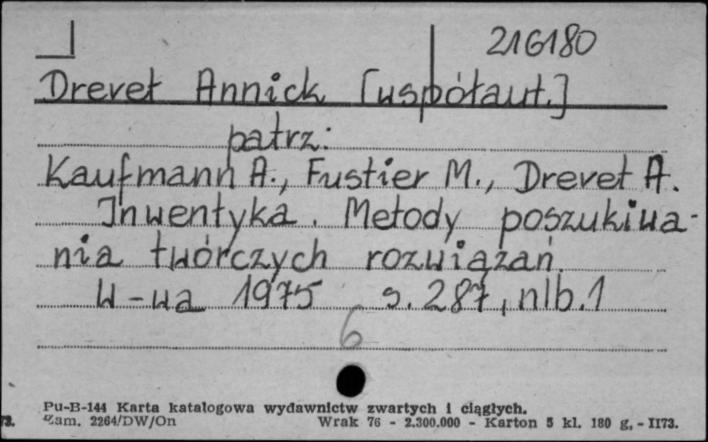 216180
Drevet Annick [współaut.]
patrz:
Kaufmann A., Fustier M., Drevet A.
Inwentyka. Metody poszukiwa-
nia twórczych rozwiązań.
W-wa 1975 s. 287, nlb. 1
6
Pu-B-144 Karta katalogowa wydawnictw zwartych i ciągłych.
73. Zam. 2264/DW/On Wrak 76 - 2.300.000 - Karton 5 kl. 180 g. - II73.